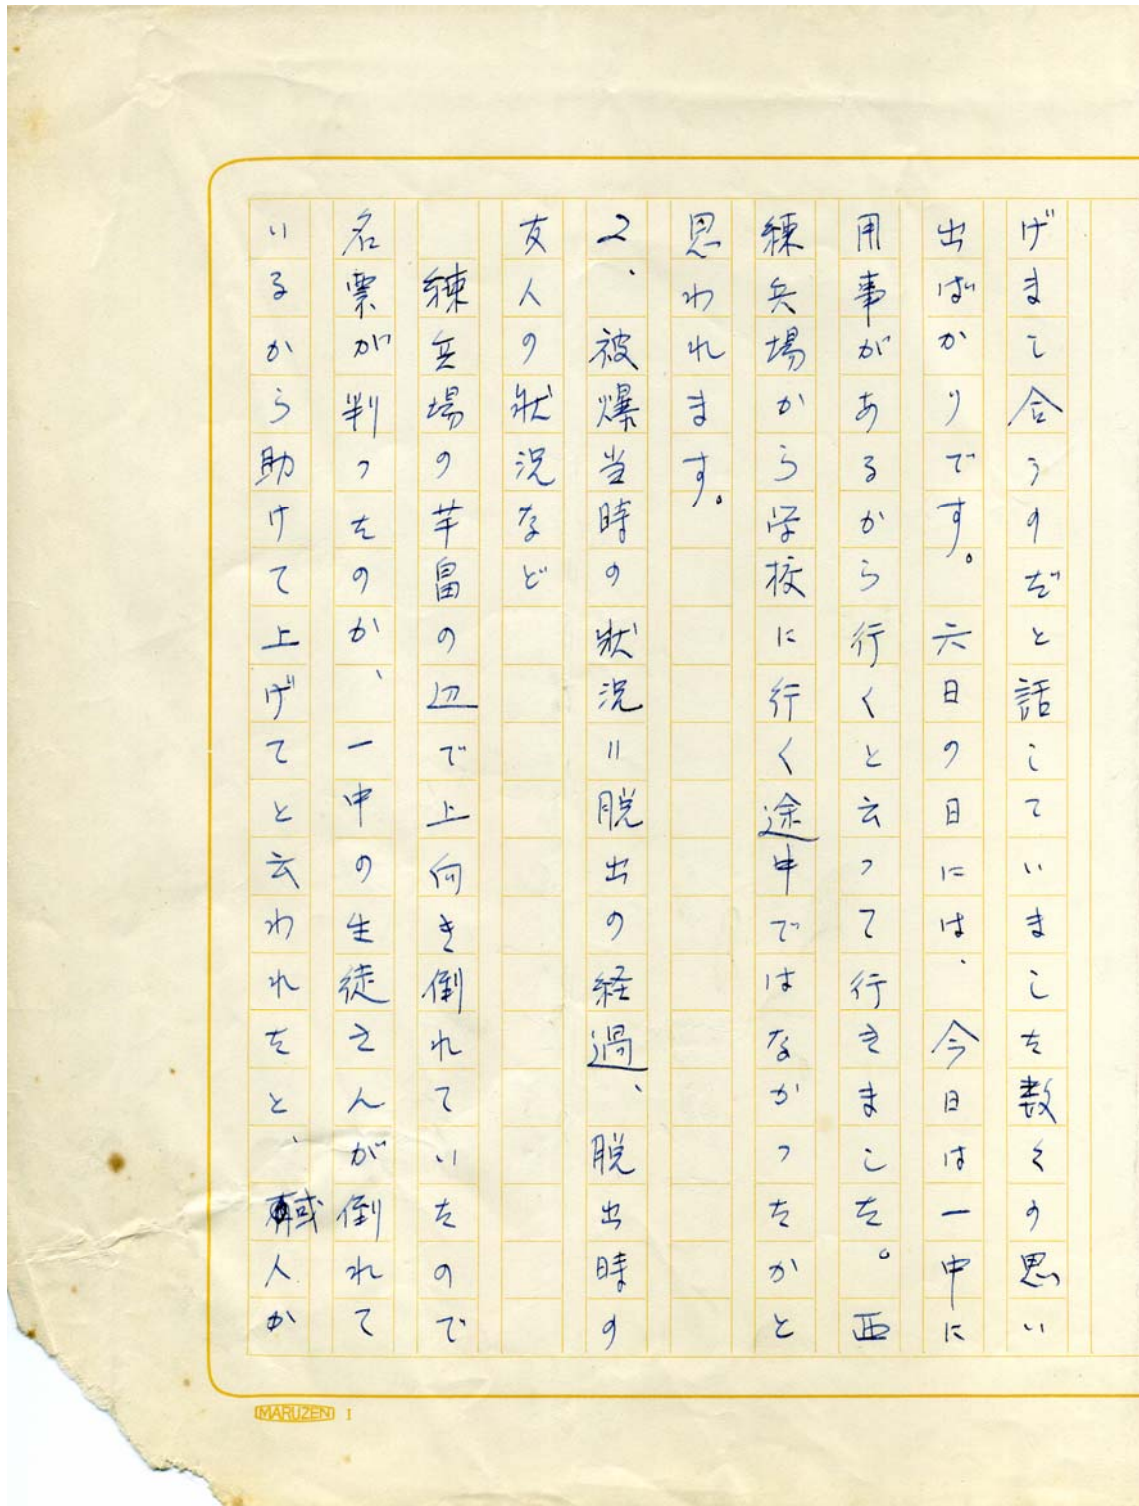 げまして合うのだと話していました数々の思い
出ばかりです。六日の日には、今日は一中に
用事があるから行くと云って行きました。西
練兵場から学校に行く途中ではなかったかと
思われます。
2、被爆当時の状況=脱出の経過、脱出時の
友人の状況など
練兵場の芋畠の辺で上向き倒れていたので
名票が判ったのか、一中の生徒さんが倒れて
いるから助けて上げてと云われたと、或人か
MARUZEN I